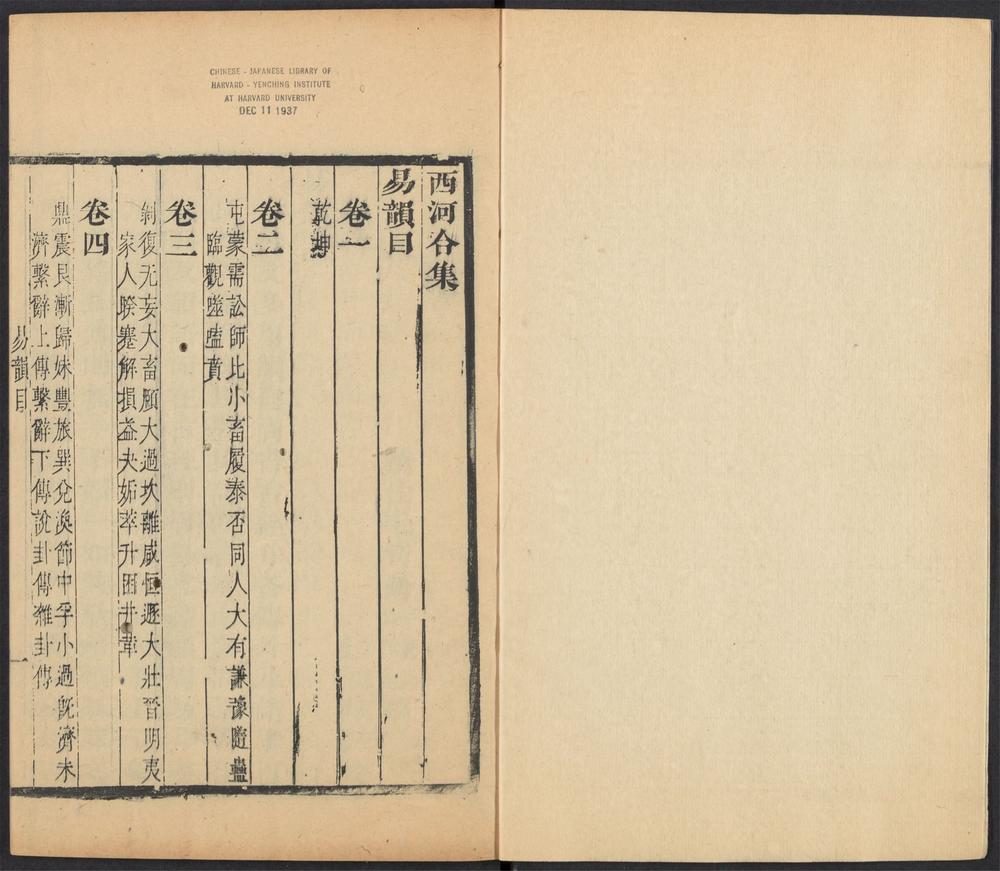 CHINESE - JAPANESE LIBRARY OF
HARVARD - YENCHING INSTITUTE
AT HARVARD UNIVERSITY
DEC 11 1937
西河合集
易韻目
卷一
乾坤
卷二
屯蒙需訟師比小畜履泰否同人大有謙豫隨蠱
臨觀噬嗑賁
卷三
剝復无妄大畜頤大過坎離咸恒遯大壯晉明夷
家人睽蹇解損益夬姤萃升困井革
卷四
鼎震艮漸歸妹豐旅巽兌渙節中孚小過旣濟未
濟繫辭上傳繫辭下傳說卦傳雜卦傳
易韻目
一